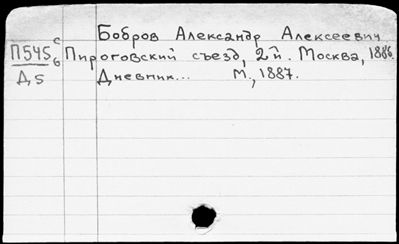 Бобров Александр Алексеевич
П545 с/б Пироговский съезд, 2й. Москва, 1886.
Д5 Дневник... М., 1887.